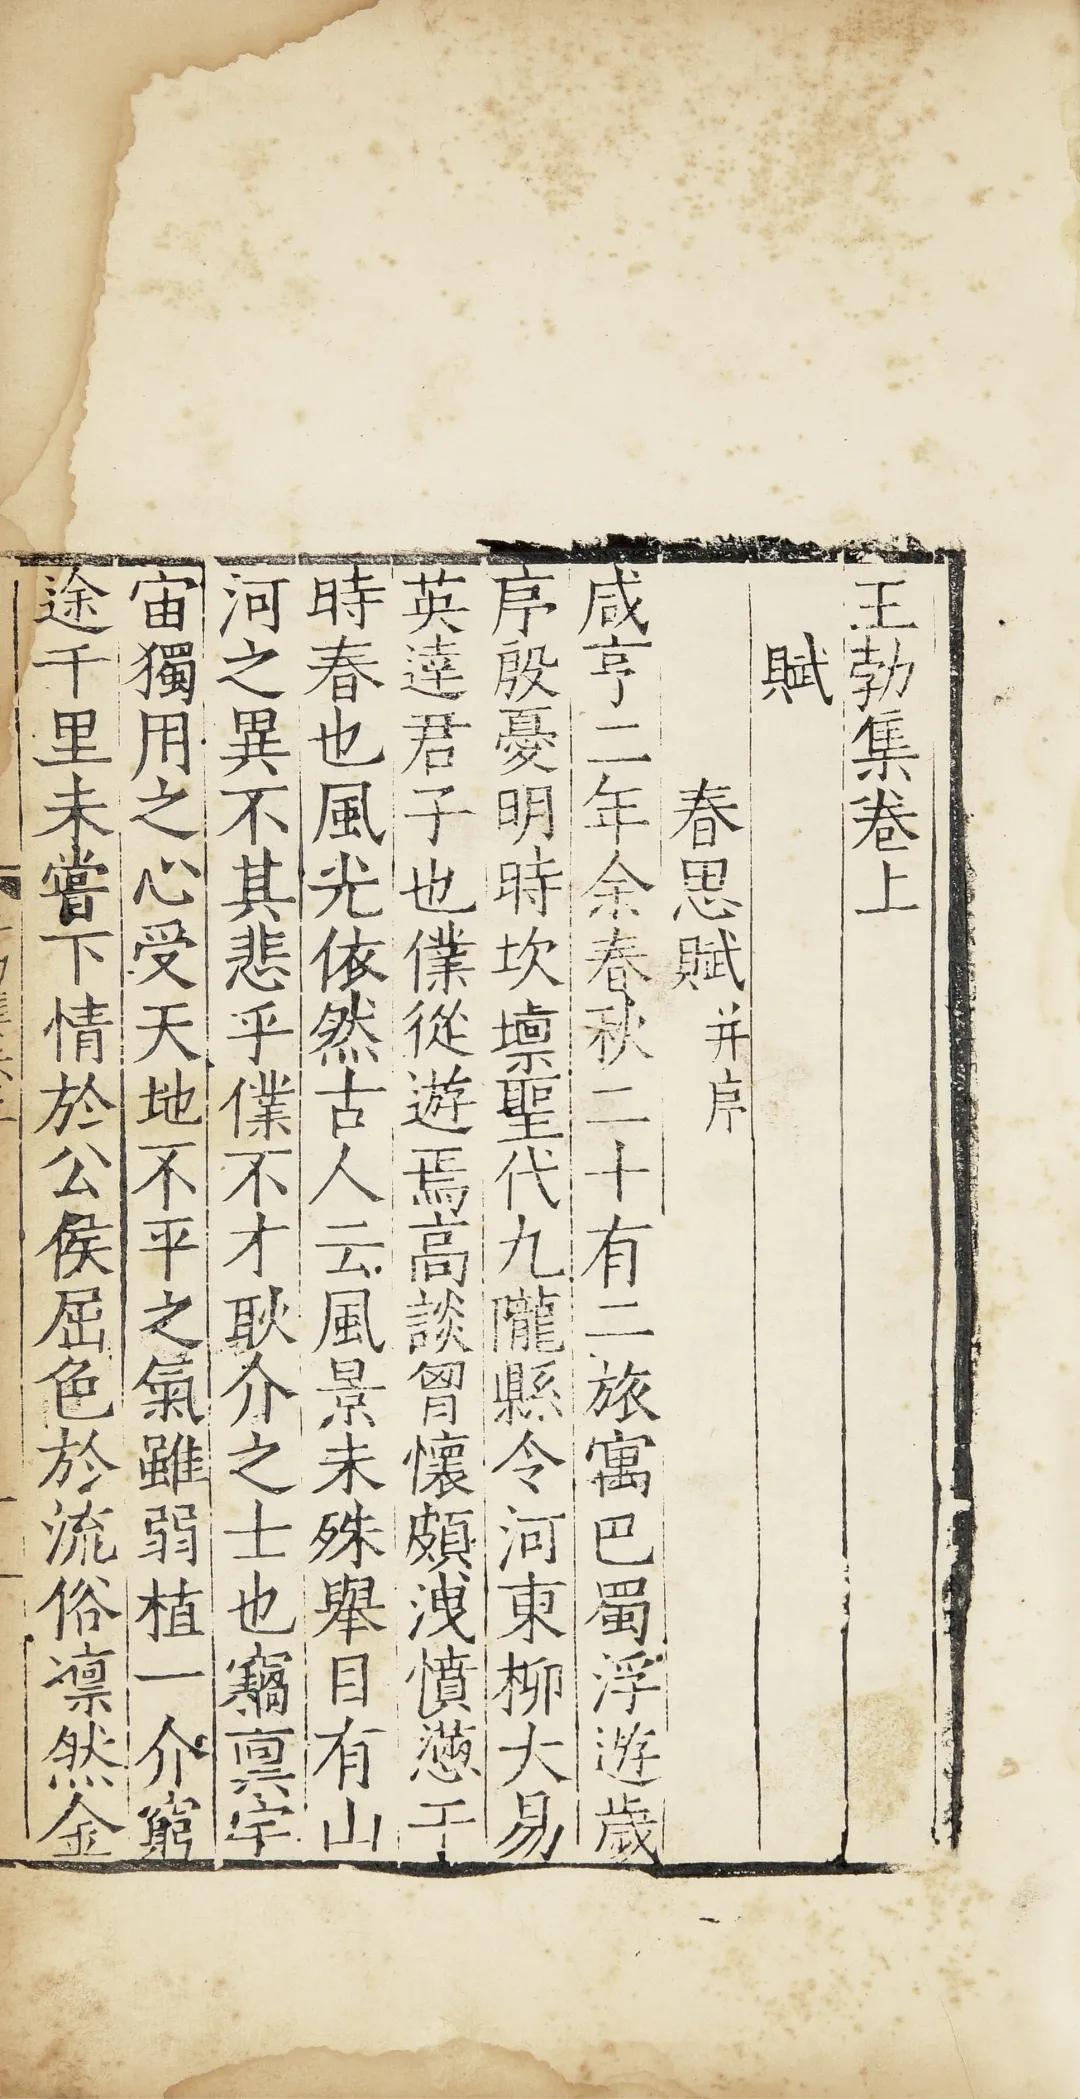 王勃集卷上
賦
春思賦并序
咸亨二年余春秋二十有二旅寓巴蜀浮遊歲
序殷憂明時坎壈聖代九隴縣令河東柳大易
英達君子也僕從遊焉高談胷懷頗洩憤懣于
時春也風光依然古人云風景未殊舉目有山
河之異不其悲乎僕不才耿介之士也竊稟宇
宙獨用之心受天地不平之氣雖弱植一介窮
途千里未嘗下情於公侯屈色於流俗凛然金